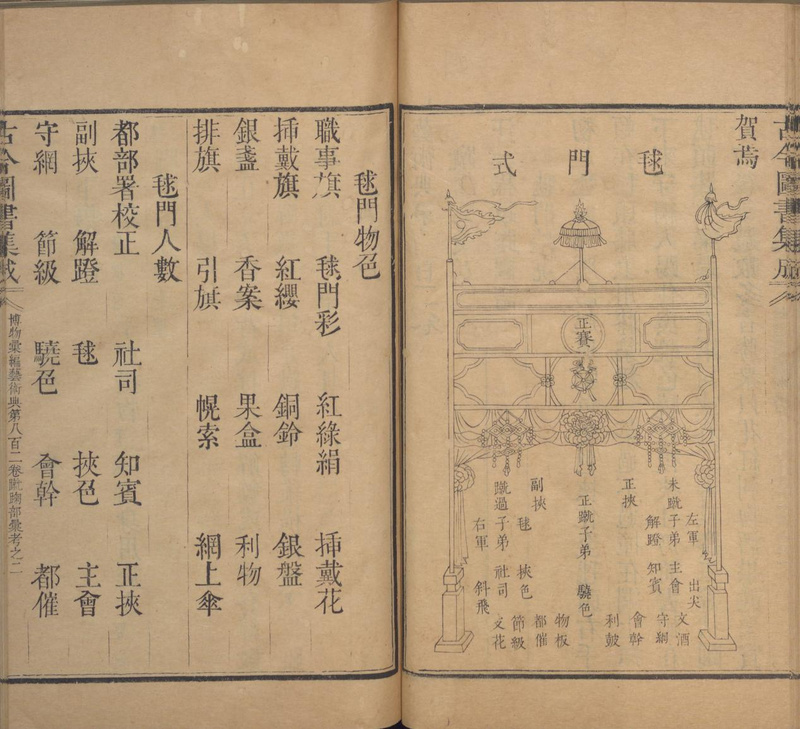 賀焉
毬門式
正賽
左軍
出尖
文酒
未蹴子弟
主會
守網
解蹬
知賓
會幹
正挾
利皷
正蹴子弟
驍色
物板
副挾
都催
毬
挾色
節級
蹴過子弟
社司
文花
右軍
斜飛
古今圖書集成
毬門物色
職事旗 毬門彩 紅綠絹 挿戴花
挿戴旗 紅纓 銅鈴 銀盤
銀盞 香案 果盒 利物
排旗 引旗 幌索 網上傘
毬門人數
都部署校正 社司 知賓 正挾
副挾 解蹬 毬 挾色 主會
守網 節級 驍色 會幹 都催
古今圖書集成
博物彙編藝術典第八百二卷蹴踘部彙考之二